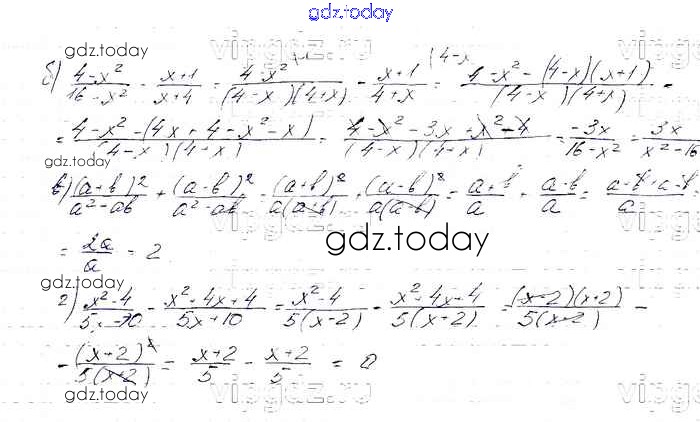 gdz.today
gdz.today
б) (4-x²)/(16-x²) - (x+1)/(x+4) = (4-x²)/((4-x)(4+x)) - (x+1)/(4+x) = (4-x²-(4-x)(x+1))/((4-x)(4+x)) =
= (4-x²-(4x+4-x²-x))/((4-x)(4+x)) = (4-x²-3x+x²-4)/((4-x)(4+x)) = (-3x)/(16-x²) = 3x/(x²-16)
gdz.today
в) (a+b)²/(a²-ab) + (a-b)²/(a²-ab) = (a+b)²/(a(a+b)) + (a-b)²/(a(a-b)) = (a+b)/a + (a-b)/a = (a+b+a-b)/a
gdz.today
= 2a/a = 2
gdz.today
г) (x²-4)/(5x-10) - (x²+4x+4)/(5x+10) = (x²-4)/(5(x-2)) - (x²+4x+4)/(5(x+2)) = ((x-2)(x+2))/(5(x-2)) -
- (x+2)²/(5(x+2)) = (x+2)/5 - (x+2)/5 = 0
gdz.today
gdz.today
vipgdz.ru